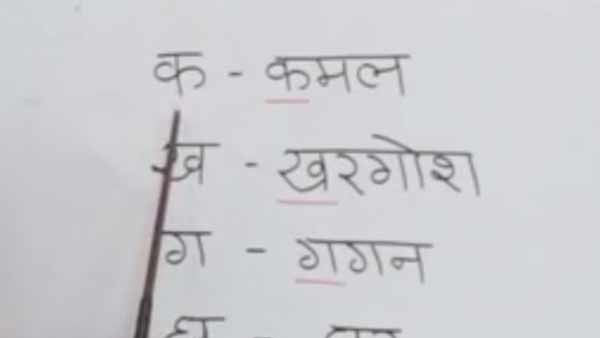 क - कमल
ख - खरगोश
ग - गगन